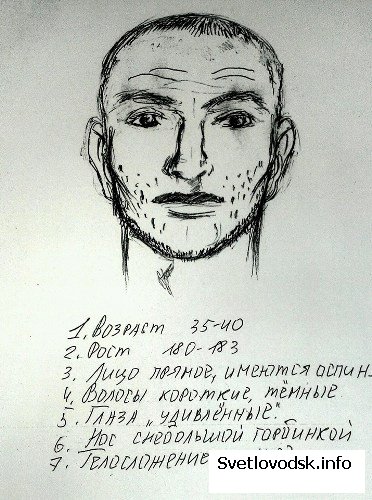 1. Возраст 35-40
2. Рост 180-183
3. Лицо прямое, имеются оспин.
4. Волосы короткие, тёмные
5. Глаза „удивлённые".
6. Нос снебольшой горбинкой
7. Телосложение
Svetlovodsk.info